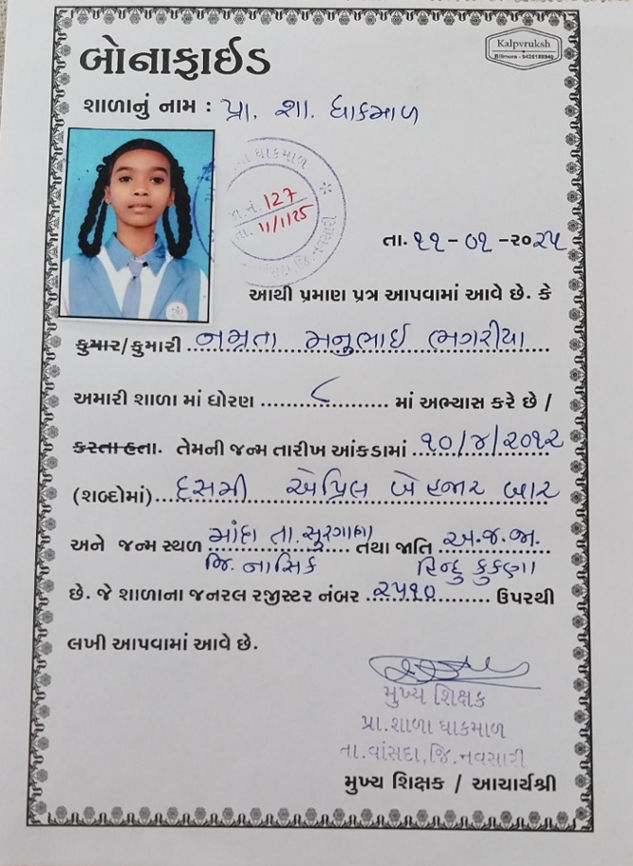 બોનાફાઈડ
Kalpvruksh
Billimora - 9426189940
શાળાનું નામ : પ્રા. શા. ધાકમાળ
ધાકમાળ
જા.નં. 127
તા. 11/1/25
જિ. નવસારી
તા. ૧૧ - ૦૧ - ૨૦૨૫
આથી પ્રમાણ પત્ર આપવામાં આવે છે. કે
કુમાર/કુમારી નમ્રતા મનુભાઈ ભગરીયા
અમારી શાળા માં ધોરણ ૮ માં અભ્યાસ કરે છે /
કરતા હતા. તેમની જન્મ તારીખ આંકડામાં ૧૦/૪/૨૦૧૨
(શબ્દોમાં) દસમી એપ્રિલ બે હજાર બાર
અને જન્મ સ્થળ માંધા તા. સુરગાણા તથા જાતિ અ.જ.જા.
જિ. નાસિક હિન્દુ કુકણા
છે. જે શાળાના જનરલ રજીસ્ટર નંબર ૨૫૧૦ ઉપરથી
લખી આપવામાં આવે છે.
મુખ્ય શિક્ષક
પ્રા.શાળા ધાકમાળ
તા.વાંસદા,જિ.નવસારી
મુખ્ય શિક્ષક / આચાર્યશ્રી